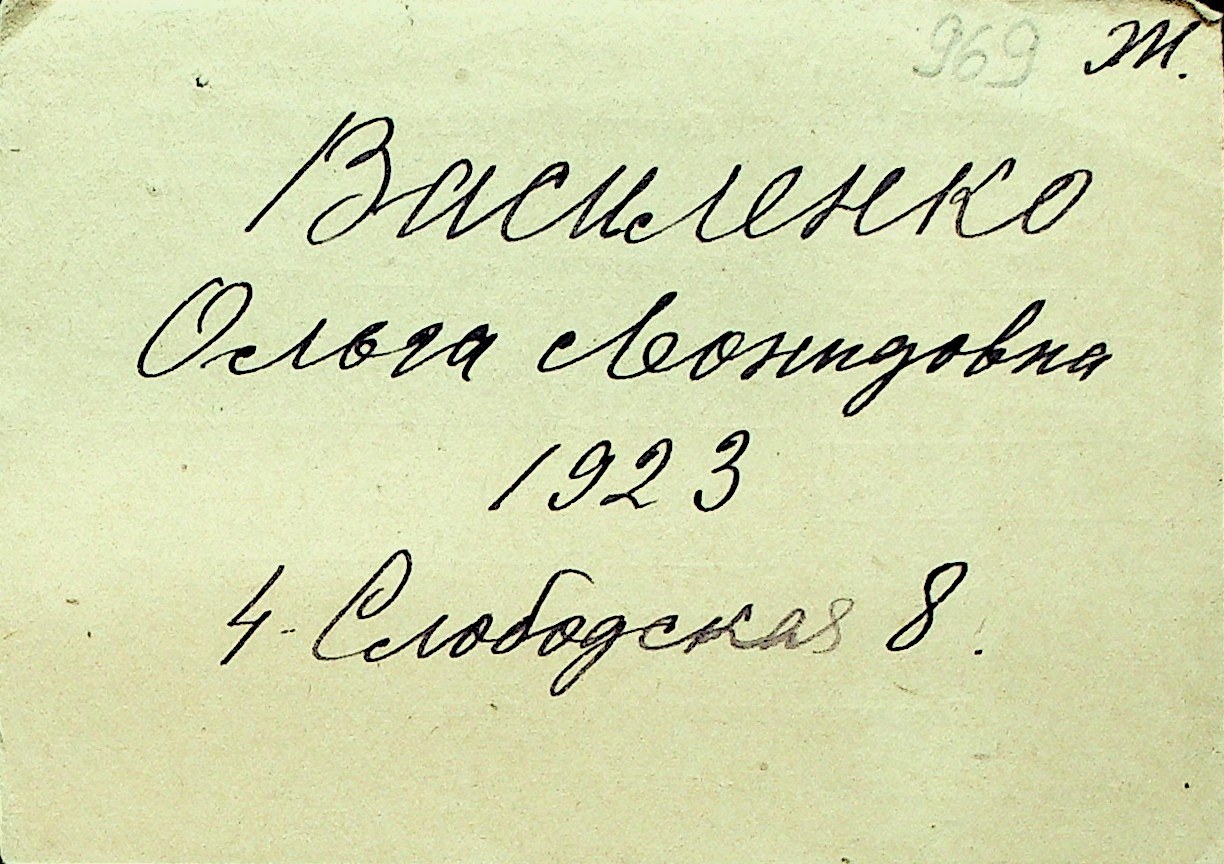 969 Ж.
Василенко
Ольга Леонидовна
1923
4-Слободская 8.